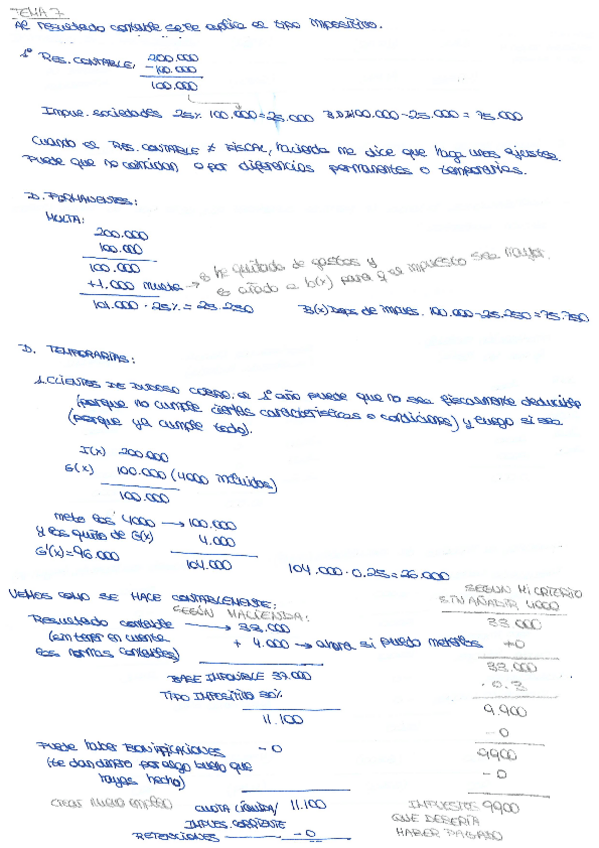 TEMA 7
Al resultado contable se le aplica el tipo impositivo.
1º RES. CONTABLE,
200.000
-100.000
100.000
Impue. sociedades 25% 100.000=25.000 B.D.I 100.000-25.000 = 75.000
Cuando el RES. CONTABLE ≠ FISCAL, hacienda me dice que haga unos ajustes.
Puede que no coincidan o por diferencias permanentes o temporarias.
D. PERMANENTES:
MULTA:
200.000
100.000
100.000
+1.000 multa → lo he quitado de gastos y
es añado a b(x) para q el impuesto sea mayor.
101.000 · 25% = 25.250 B(x) desps de impues. 100.000-25.250 = 75.750
D. TEMPORARIAS:
1. CLIENTES DE DUDOSO COBRO. el 1º año puede que no sea fiscalmente deducible
(porque no cumple ciertas características o condiciones) y luego si sea
(porque ya cumple todo).
I(x) 200.000
G(x) 100.000 (4000 incluidos)
100.000
meto los 4000 → 100.000
y los quito de G(x) 4.000
G'(x)=96.000 104.000 104.000 · 0,25 = 26.000
VEMOS COMO SE HACE CONTABLEMENTE:
SEGÚN HACIENDA:
SEGÚN MI CRITERIO
SIN AÑADIR 4000
Resultado contable → 33.000 33.000
(sin tener en cuenta + 4.000 → ahora si puedo meterlos +0
las normas contables) 33.000
BASE IMPONIBLE 37.000 · 0.3
TIPO IMPOSITIVO 30% 9.900
11.100 -0
Puede haber BONIFICACIONES -0 9900
(te dan dinero por algo bueno que -0
hayas hecho)
crear nuevo empleo CUOTA LÍQUIDA/ 11.100 IMPUESTOS 9900
IMPUES. CORRIENTE QUE DEBERÍA
RETENCIONES -0 HABER PAGADO